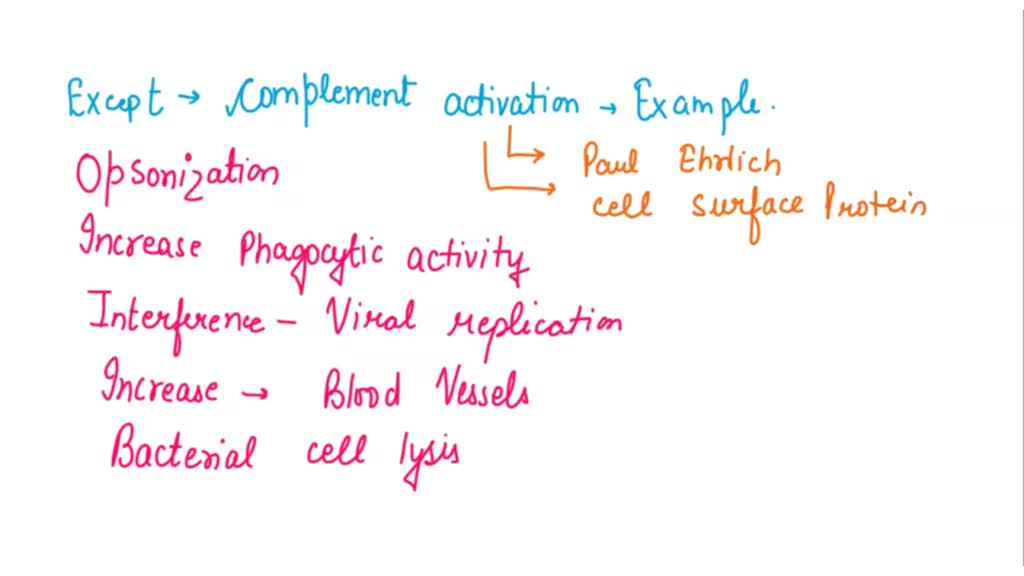 Except → Complement activation → Example.
Opsonization
Paul Ehrlich
cell surface Protein
Increase Phagocytic activity
Interference - Viral replication
Increase → Blood Vessels
Bacterial cell lysis